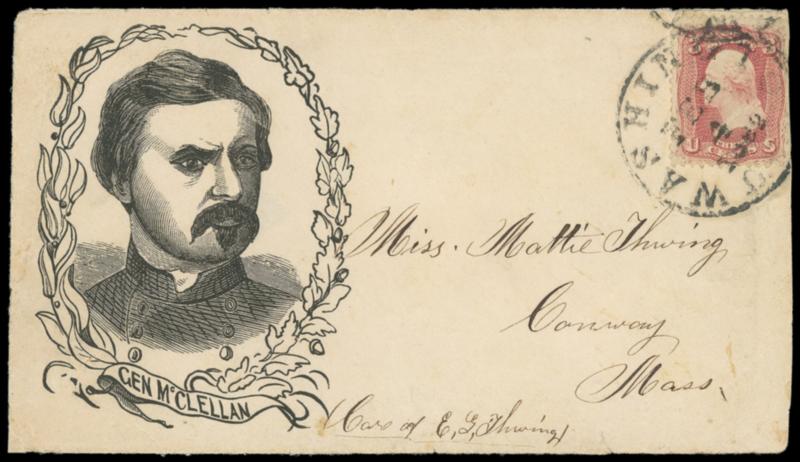 GEN McCLELLAN
WASHIN
U S
CENTS
Miss. Mattie Thwing
Conway
Mass.
(Care of E, G, Thwing)